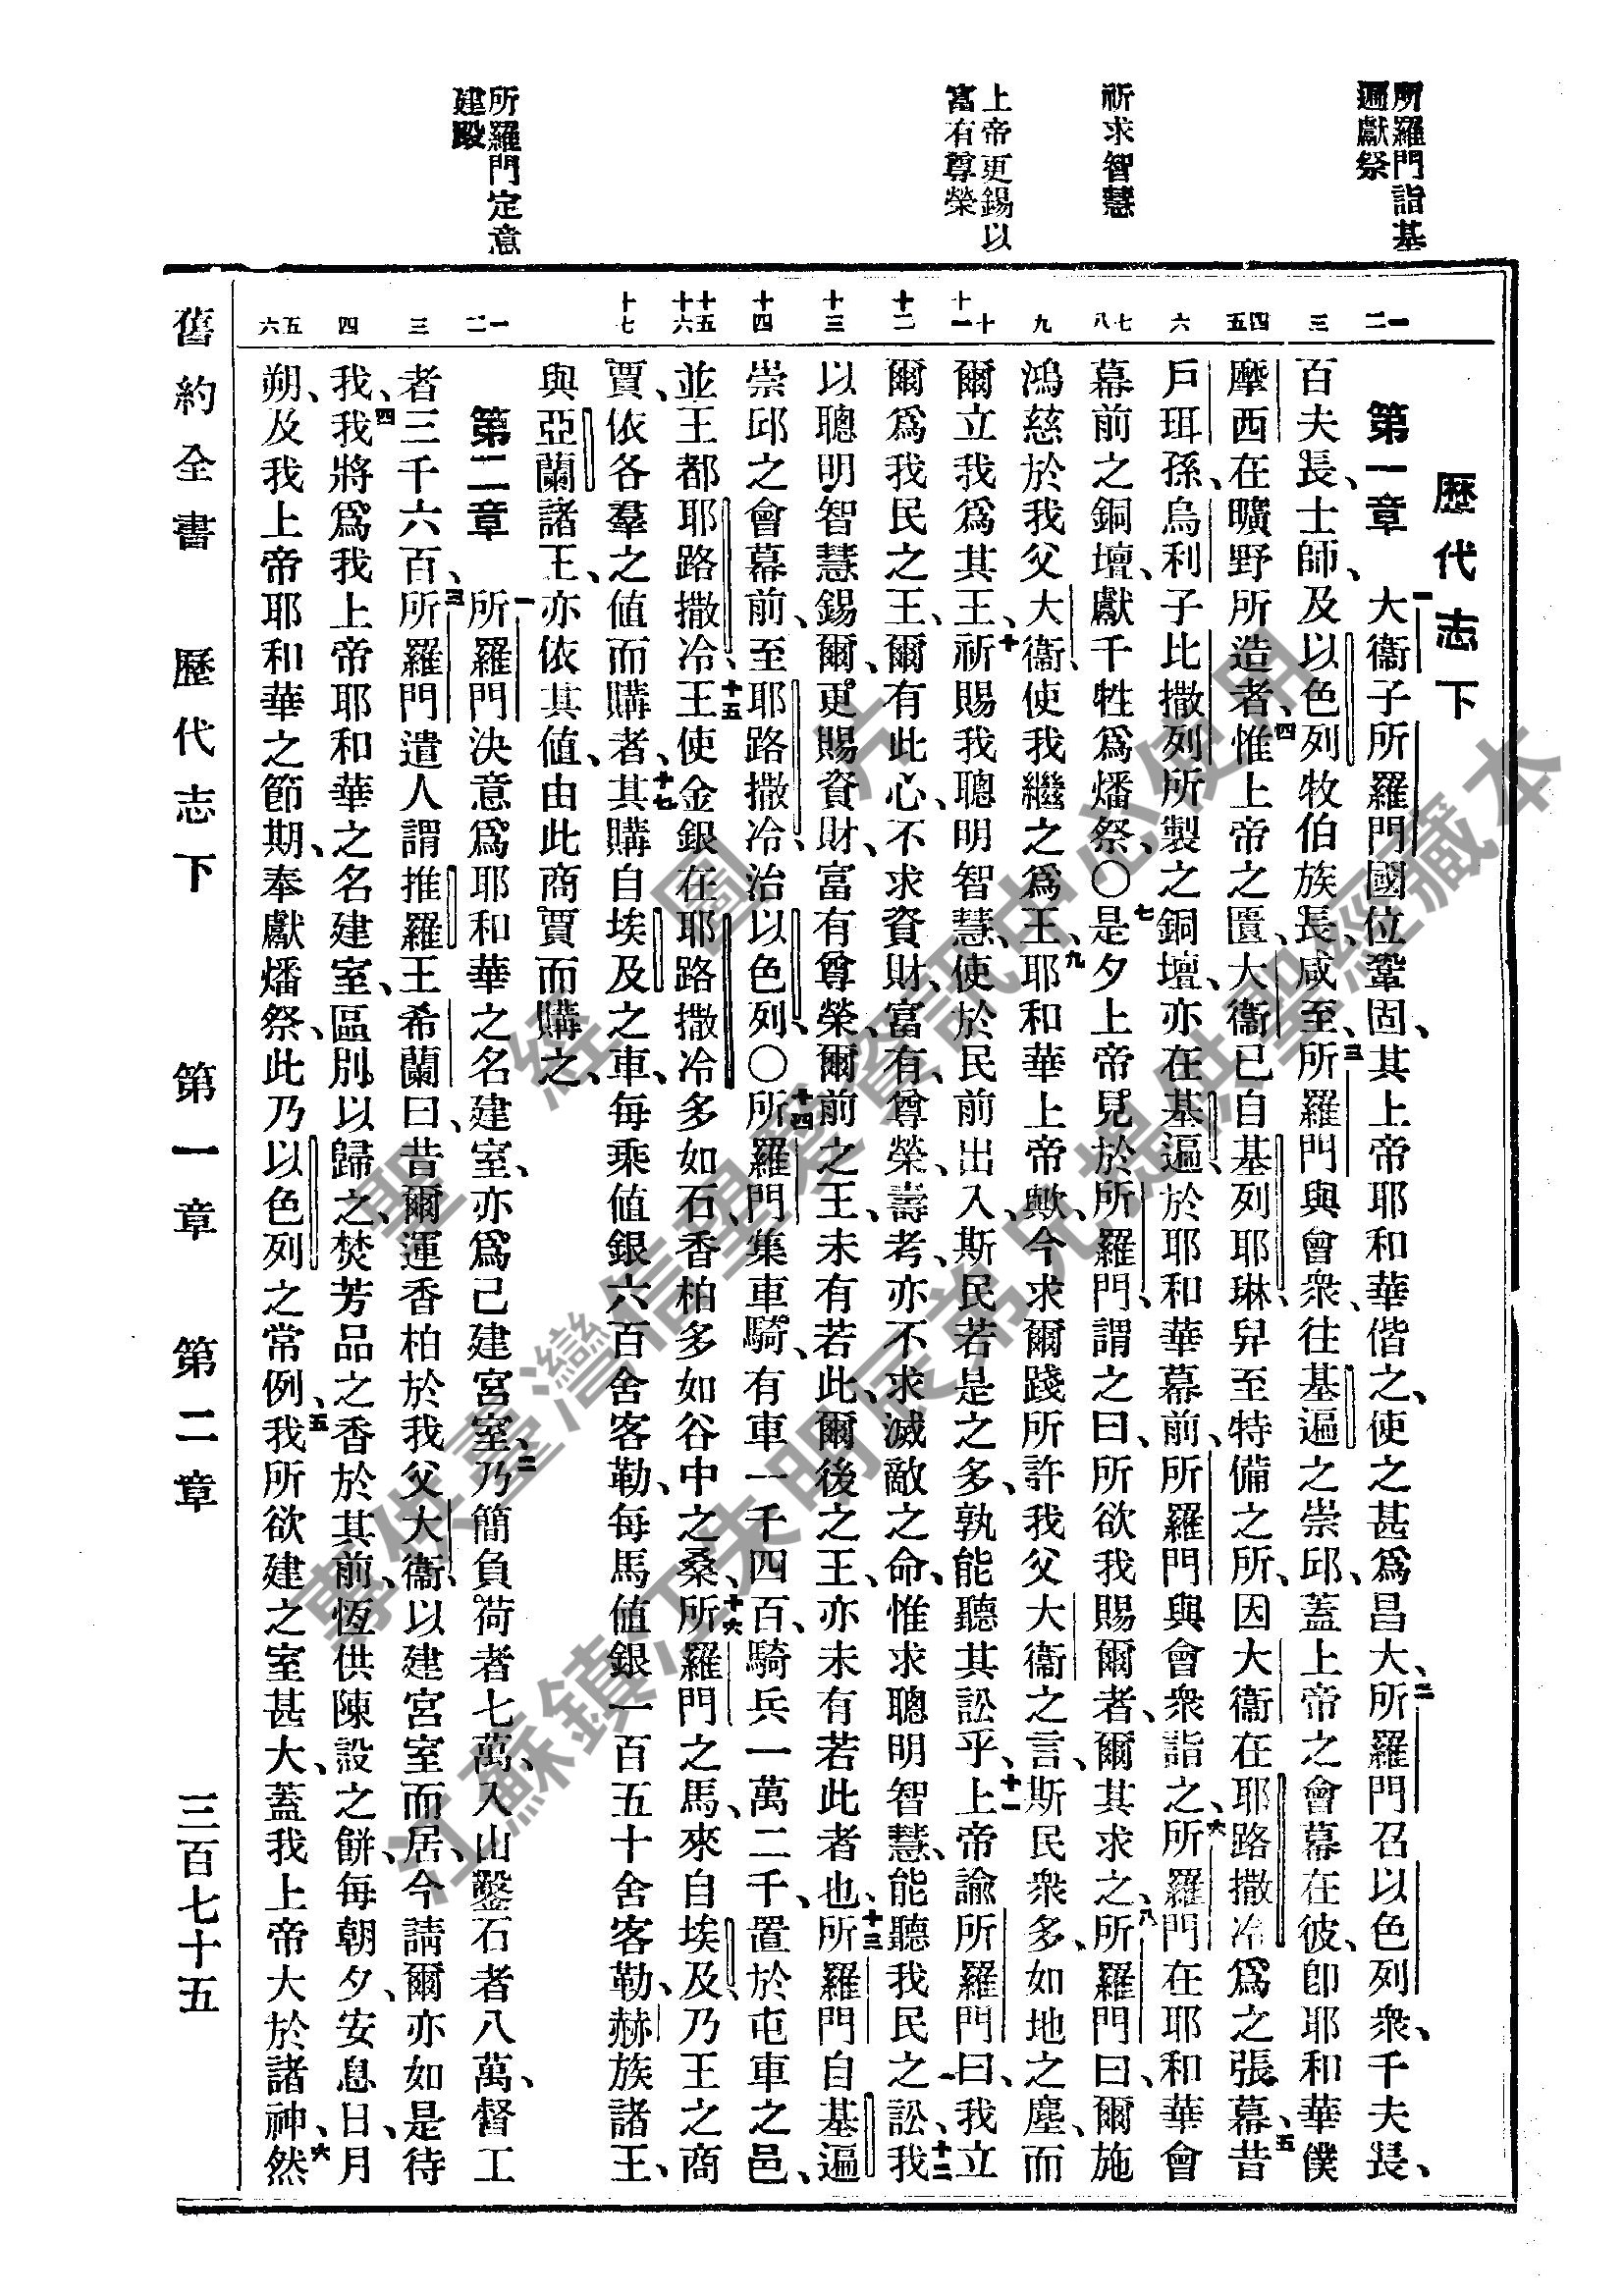 所羅門詣基
遍獻祭
祈求智慧
上帝更錫以
富有尊榮
所羅門定意
建殿
歷代志下
一二
三
四五
六
七八
九
十十一
十二
十三
十四
十五十六
十七
一二
三
四
五六
第一章 一大衞子所羅門國位鞏固、其上帝耶和華偕之、使之甚爲昌大、二所羅門召以色列衆、千夫長、
百夫長、士師、及以色列牧伯族長、咸至、三所羅門與會衆、往基遍之崇邱、蓋上帝之會幕在彼、卽耶和華僕
摩西在曠野所造者、四惟上帝之匱、大衞已自基列耶琳、舁至特備之所、因大衞在耶路撒冷爲之張幕、五昔
戶珥孫、烏利子比撒列所製之銅壇、亦在基遍、於耶和華幕前、所羅門與會衆詣之、六所羅門在耶和華會
幕前之銅壇、獻千牲爲燔祭、○七是夕上帝見於所羅門、謂之曰、所欲我賜爾者、爾其求之、八所羅門曰、爾施
鴻慈於我父大衞、使我繼之爲王、九耶和華上帝歟、今求爾踐所許我父大衞之言、斯民衆多、如地之塵、而
爾立我爲其王、十祈賜我聰明智慧、使於民前出入、斯民若是之多、孰能聽其訟乎、十一上帝諭所羅門曰、我立
爾爲我民之王、爾有此心、不求資財、富有、尊榮、壽考、亦不求滅敵之命、惟求聰明智慧、能聽我民之訟、十二我
以聰明智慧錫爾、更賜資財、富有尊榮、爾前之王、未有若此、爾後之王、亦未有若此者也、十三所羅門自基遍
崇邱之會幕前、至耶路撒冷、治以色列、○十四所羅門集車騎、有車一千四百、騎兵一萬二千、置於屯車之邑、
並王都耶路撒冷、十五王使金銀在耶路撒冷多如石、香柏多如谷中之桑、十六所羅門之馬、來自埃及、乃王之商
賈、依各羣之值而購者、十七其購自埃及之車、每乘值銀六百舍客勒、每馬值銀一百五十舍客勒、赫族諸王、
與亞蘭諸王、亦依其值、由此商賈而購之、
第二章 一所羅門決意爲耶和華之名建室、亦爲己建宮室、二乃簡負荷者七萬、入山鑿石者八萬、督工
者三千六百、三所羅門遣人謂推羅王希蘭曰、昔爾運香柏於我父大衞、以建宮室而居、今請爾亦如是待
我、四我將爲我上帝耶和華之名建室、區別以歸之、焚芳品之香於其前、恆供陳設之餅、每朝夕、安息日、月
朔、及我上帝耶和華之節期、奉獻燔祭、此乃以色列之常例、五我所欲建之室甚大、蓋我上帝大於諸神、六然
舊約全書 歷代志下 第一章 第二章 三百七十五
聖經圖片
專供臺灣信望愛資訊中心使用
江蘇鎮江朱明辰弟兄提供聖經藏本